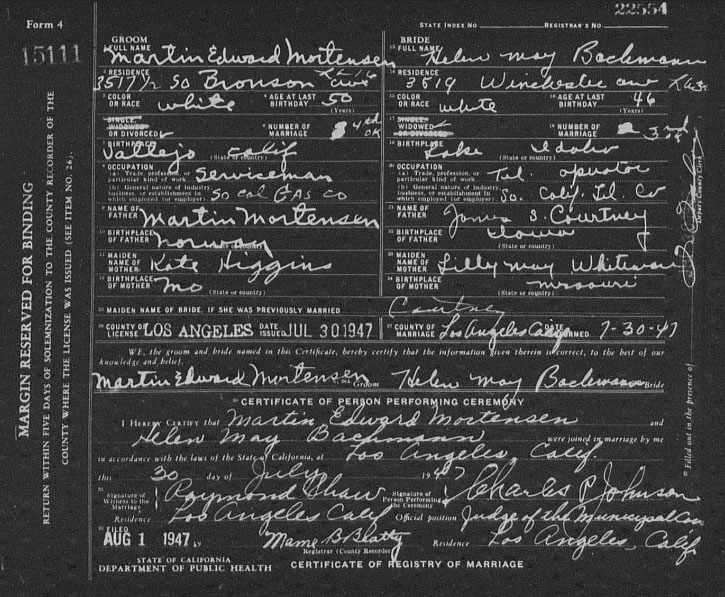 22554
Form 4
STATE INDEX NO.
REGISTRAR'S NO.
15111
GROOM
FULL NAME Martin Edward Mortensen
RESIDENCE 3517 1/2 So Bronson ave
COLOR OR RACE white
AGE AT LAST BIRTHDAY 50 (Years)
SINGLE, WIDOWED OR DIVORCED
NUMBER OF MARRIAGE 4
BIRTHPLACE Vallejo Calif
(State or country)
OCCUPATION
(a) Trade, profession, or particular kind of work Serviceman
(b) General nature of industry, business, or establishment in which employed (or employer) So Cal Gas Co
NAME OF FATHER Martin Mortensen
BIRTHPLACE OF FATHER Norway
(State or country)
MAIDEN NAME OF MOTHER Kate Higgins
BIRTHPLACE OF MOTHER Mo
(State or country)
BRIDE
FULL NAME Helen May Bachmann
RESIDENCE 3519 Winchester ave
COLOR OR RACE white
AGE AT LAST BIRTHDAY 46 (Years)
SINGLE, WIDOWED OR DIVORCED
NUMBER OF MARRIAGE 3rd
BIRTHPLACE Lake Idaho
(State or country)
OCCUPATION
(a) Trade, profession, or particular kind of work Tel operator
(b) General nature of industry, business, or establishment in which employed (or employer) So. Calif. Tel. Co
NAME OF FATHER James S. Courtney
BIRTHPLACE OF FATHER Iowa
(State or country)
MAIDEN NAME OF MOTHER Lilly May
BIRTHPLACE OF MOTHER Missouri
(State or country)
MAIDEN NAME OF BRIDE, IF SHE WAS PREVIOUSLY MARRIED Courtney
COUNTY OF LICENSE LOS ANGELES DATE ISSUED JUL 30 1947
COUNTY OF MARRIAGE Los Angeles Calif DATE PERFORMED 7-30-47
WE, the groom and bride named in this Certificate, hereby certify that the information given therein is correct, to the best of our
knowledge and belief.
Martin Edward Mortensen Groom Helen May Bachmann Bride
CERTIFICATE OF PERSON PERFORMING CEREMONY
I HEREBY CERTIFY that Martin Edward Mortensen and
Helen May Bachmann were joined in marriage by me
in accordance with the laws of the State of California, at Los Angeles, Calif.
this 30 day of July 1947
Signature of Witness to the Marriage Raymond Shaw
Signature of Person Performing the Ceremony Charles P Johnson
Residence Los Angeles Calif
Official position Judge of the Municipal Court
FILED AUG 1 1947
Mame B Beatty
Registrar (County Recorder)
Residence Los Angeles, Calif
STATE OF CALIFORNIA
DEPARTMENT OF PUBLIC HEALTH
CERTIFICATE OF REGISTRY OF MARRIAGE
MARGIN RESERVED FOR BINDING
RETURN WITHIN FIVE DAYS OF SOLEMNIZATION TO THE COUNTY RECORDER OF THE
COUNTY WHERE THE LICENSE WAS ISSUED (SEE ITEM NO. 26).
Filled out in the presence of